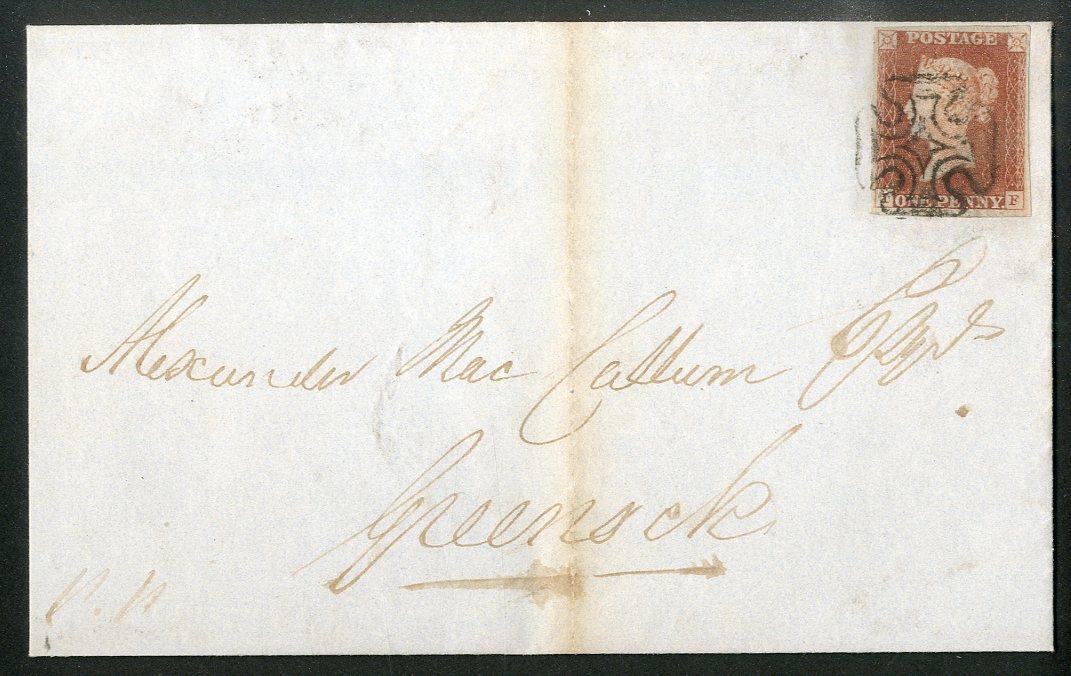 POSTAGE
ONE PENNY.
F
Alexander Mac Callum Esqr
Greenock